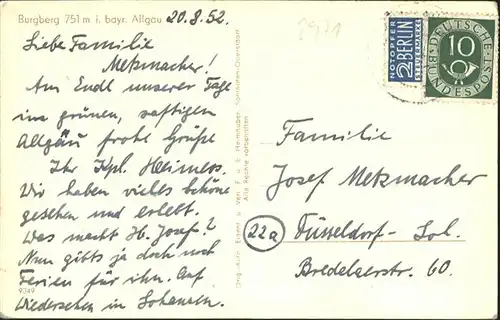 Burgberg 751 m i. bayr. Allgäu
20.8.52.
Liebe Familie
Metzmacher!
Am Endl unserer Tage
im grünen, saftigen
Allgäu frohe Grüße
Ihr Kpl. Heimers.
Wir haben vieles Schöne
gesehen und erlebt.
Was macht H. Josef?
Nun gibts ja doch noch
Ferien für ihn. Auf
Wiedersehen in
9349
Alle Rechte vorbehalten
NOTOPFER
2 BERLIN
STEUERMARKE
DEUTSCHE
10
BUNDESPOST
Familie
Josef Metzmacher
22a
Düsseldorf-
Bredelaerstr. 60.